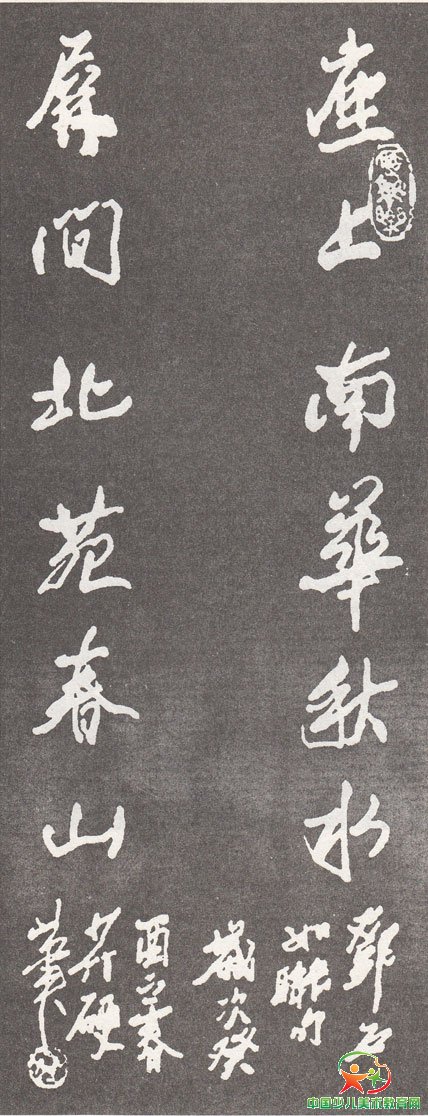 座上南華秋水
鄧石
如聯句
歲次癸
酉之春
屏間北苑春山
中国少儿美术教育网